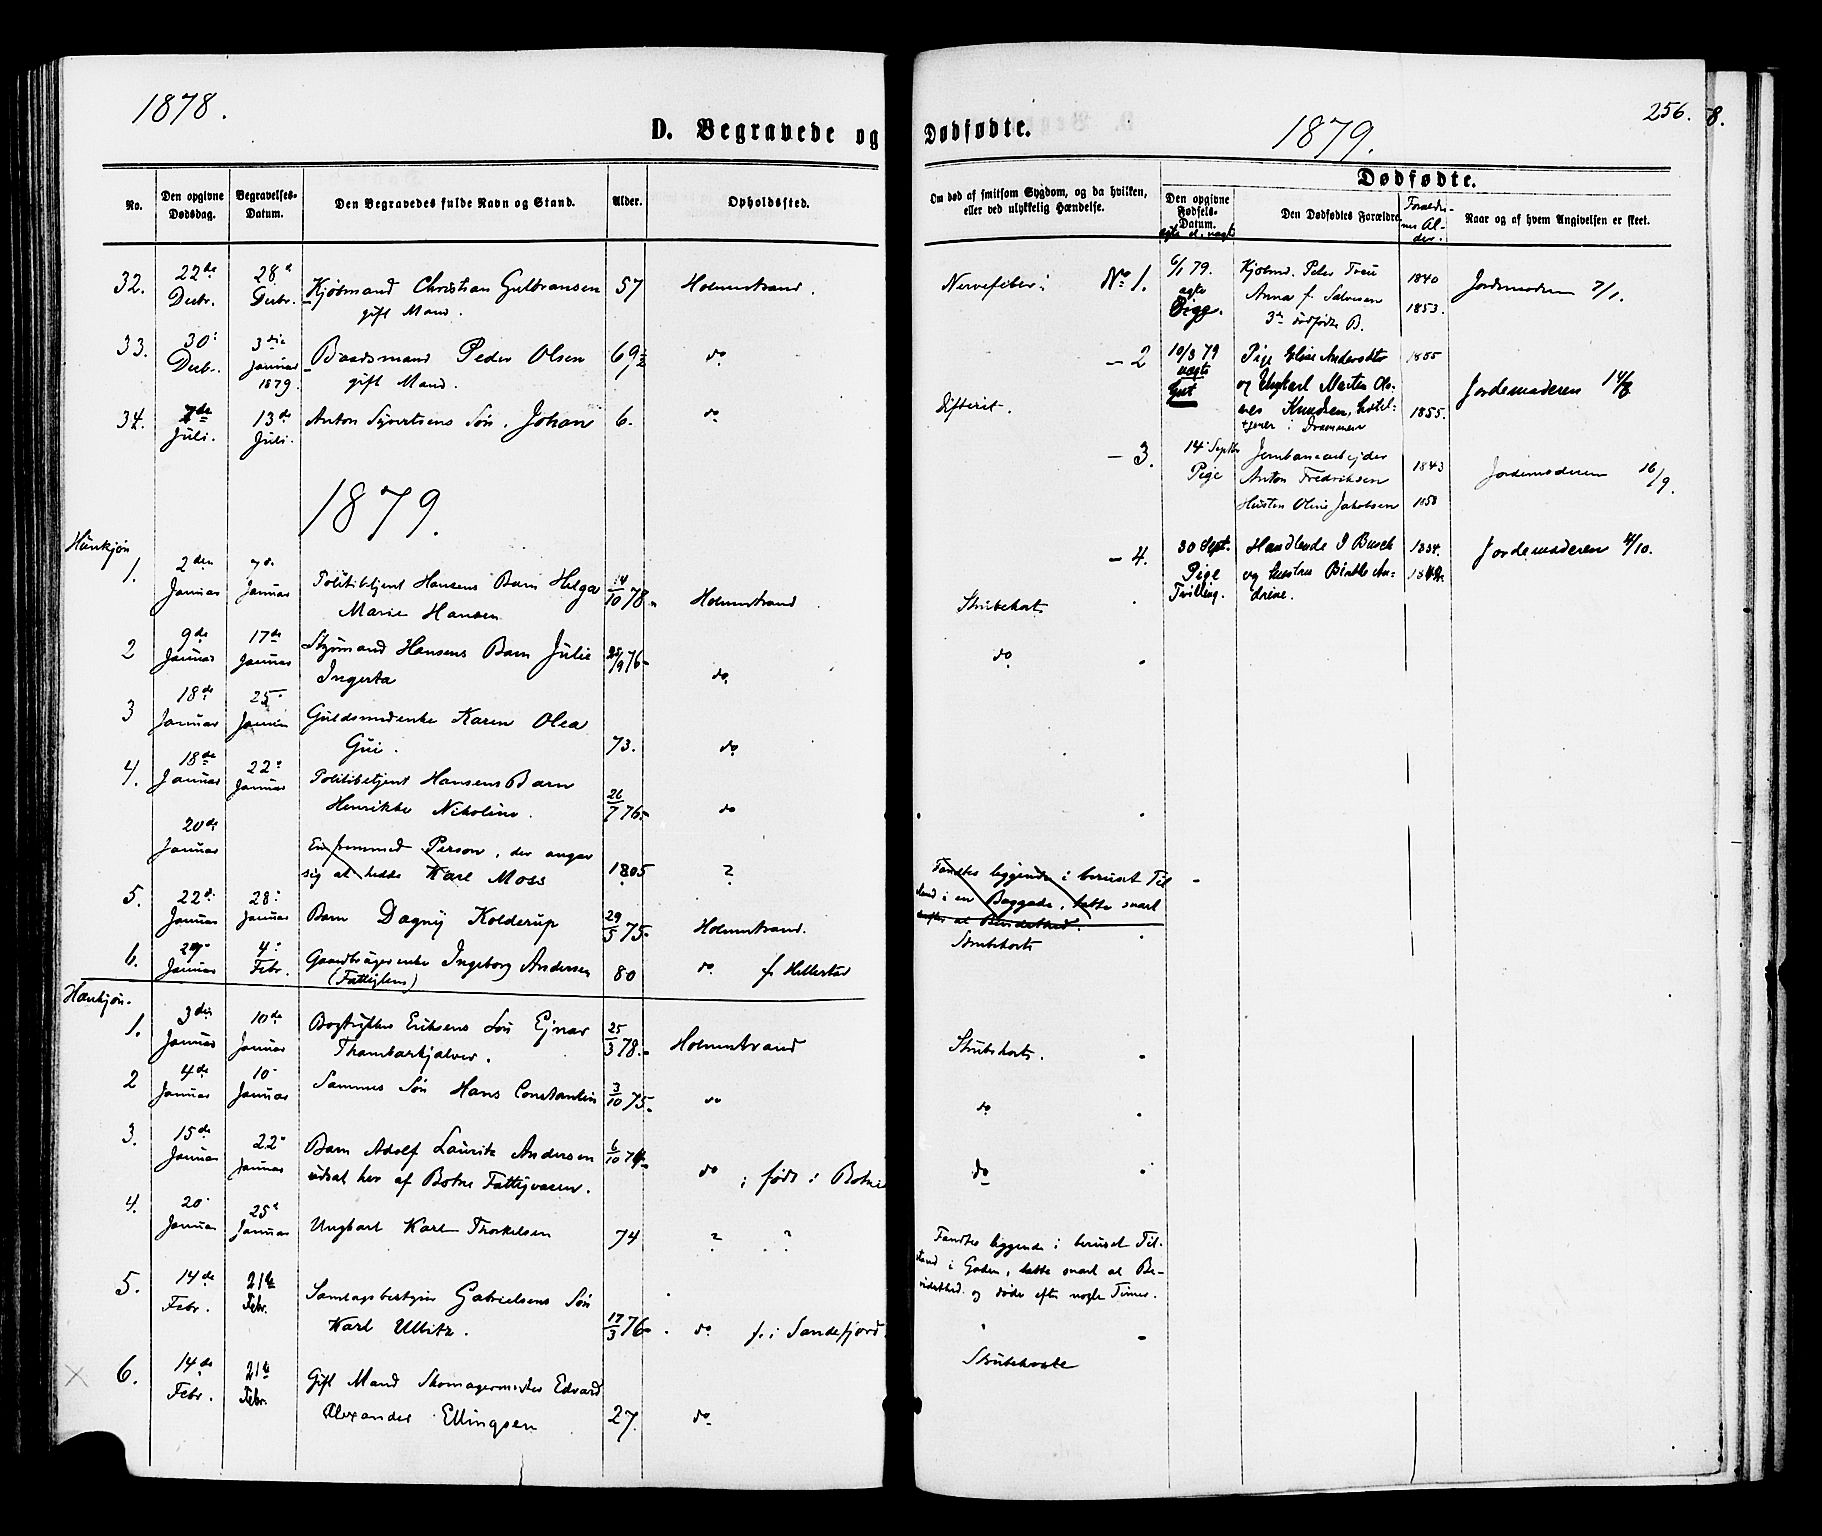 1878.
D. Begravede og Dødfødte.
1879.
256.
8.
Dødfødte.
No.
Den opgivne Dødsdag.
Begravelses-Datum.
Den Begravedes fulde Navn og Stand.
Alder.
Opholdssted.
Om død af smitsom Sygdom, og da hvilken,
eller ved ulykkelig Hændelse.
Den opgivne Fødsels-Datum.
ægte el. uægte
Den Dødfødtes Forældre
Forældrenes Alder.
Naar og af hvem Angivelsen er skeet.
32. 22de Decbr. 28d Decbr. Kjøbmand Christian Gulbransen 57 Holmestrand. Nervefeber
gift Mand.
33. 30: Decbr. 3die Januar 1879. Baadsmand Peder Olsen 69½ do
gift Mand.
34. 7de Juli. 13de Juli. Anton Syvertsens Søn, Johan 6. do Difterit.
1879.
Hunkjøn
1. 2den Januar 7d. Januar Politibetjent Hansens Barn Helga 14/10 78 Holmestrand Strubehoste
Marie Hansen
2 9de Januar 17de Januar Styrmand Hansens Barn Julie 25/9 76 do. do
Ingerta
3 18de Januar 25 Januar Guldsmedenke Karen Olea
Gui. 73. do
4. 18de Januar 22 Januar Politibetjent Hansens Barn
Henrikke Nikoline. 26/7 76 do
20de Januar En fremmed Person, der angav
sig at hedde Karl Moss 1805 ?
Fandtes liggende i beruset Til
stand i en Baggade, tabte snart
derefter al Bevidsthed.
5. 22d Januar 28: Januar Barn Dagny Kolderup 29/5 75 Holmestrand. Strubehoste
6. 29 Januar 4: Febr. Gaardbrugerenke Ingeborg Andersen 80 do. f. Hillestad
(Fattiglem)
Hankjøn.
1. 3die Januar 10de Januar Bogtrykker Eriksens Søn Ejnar 25/3 78. Holmestrand Strubehoste.
Thambarskjelver.
2 4de Januar 10 Januar Sammes Søn Hans Constantin 3/10 75. do do
3. 15de Januar 22 Januar Barn Adolf Lauritz Andersen 6/10 74 do ; født i Botne do
udsat her af Botne Fattigvæsen.
4. 20 Januar 25d Januar Ungkarl Karl Thorkelsen 74 ? ?
Fandtes liggende i beruset Til-
stand i Gaden, tabte snart al Be-
vidsthed og døde efter nogle Timer.
5. 14de Febr. 21de Febr. Gabrielsens Søn
Karl Ullitz. 17/3 76 do f. i Sandefjord. Strubehoste
6. 14de Febr. 21de Febr. Gift Mand Skomagermester Edvard
Alexander Ellingsen 27. do
No 1. 6/1 79. ægte Pige. Kjøbmd. Peter 1840 Jordemoderen 7/1.
Anna f. Salvesen 1853.
3de dødfødte B.
- 2 10/3 79 uægte Gut Pige Elise Andersdtr 1855
og Ungkarl Martin Ol-
ves Knudsen, Hotel- 1855. Jordemoderen 14/3
tjener i Drammen
- 3. 14 Septbr Pige Jernbanearbejder
Anton Fredriksen 1843 Jordemoderen 16/9.
Hustru Oline Jakobsen 1850
- 4. 30 Sept. Pige Tvilling. Handlende J Busch 1834. Jordemoderen 4/10.
og Hustru Birthe An-
drine.